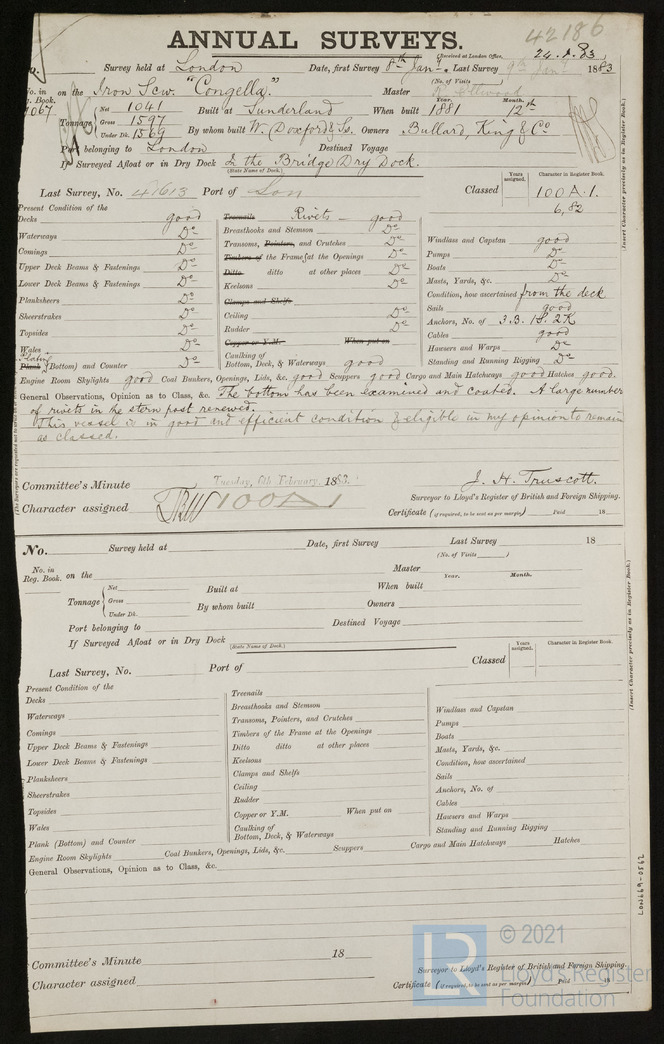 42186
ANNUAL SURVEYS.
(Received at London Office, 24.1.83)
No. Survey held at London Date, first Survey 8th Jany. Last Survey 9th Jany 1883
(No. of Visits)
No. in Reg. Book. 1067 on the Iron Scw. "Congella." Master R. Ellwood
Tonnage Net 1041 Built at Sunderland When built Year. 1881 Month. 12th
Gross 1597
Under Dk. 1569 By whom built W. Doxford & Ss. Owners Bullard, King & Co
Port belonging to London Destined Voyage
If Surveyed Afloat or in Dry Dock In the Bridge Dry Dock.
(State Name of Dock.)
Last Survey, No. 41613 Port of Lon Classed Years assigned. Character in Register Book. 100A.1.
6,82
(Insert Character precisely as in Register Book.)
Present Condition of the
Decks good
Waterways Do
Comings Do
Upper Deck Beams & Fastenings Do
Lower Deck Beams & Fastenings Do
Planksheers Do
Sheerstrakes Do
Topsides Do
Wales Do
Plating
Plank (Bottom) and Counter Do
Treenails Rivets - good
Breasthooks and Stemson Do
Transoms, Pointers, and Crutches Do
Timbers of the Frame at the Openings Do
Ditto ditto at other places Do
Keelsons Do
Clamps and Shelfs
Ceiling Do
Rudder Do
Copper or Y.M. When put on
Caulking of
Bottom, Deck, & Waterways good
Windlass and Capstan good
Pumps Do
Boats Do
Masts, Yards, &c. Do
Condition, how ascertained from the deck
Sails good
Anchors, No. of 3.B. 1S. 2K
Cables good
Hawsers and Warps Do
Standing and Running Rigging Do
Engine Room Skylights good Coal Bunkers, Openings, Lids, &c. good Scuppers good Cargo and Main Hatchways good Hatches good.
General Observations, Opinion as to Class, &c. The bottom has been examined and coated. A large number
of rivets in the stern post renewed.
This vessel is in good and efficient condition & eligible in my opinion to remain
as classed.
Committee's Minute Tuesday, 6th February, 1883. J. H. Truscott.
Surveyor to Lloyd's Register of British and Foreign Shipping.
Character assigned 100A1
Certificate (if required, to be sent as per margin) Paid 18
No. Survey held at Date, first Survey Last Survey 18
(No. of Visits)
No. in
Reg. Book. on the Master
Tonnage Net Built at When built Year. Month.
Gross
Under Dk. By whom built Owners
Port belonging to Destined Voyage
If Surveyed Afloat or in Dry Dock
(State Name of Dock.)
Last Survey, No. Port of Classed Years assigned. Character in Register Book.
(Insert Character precisely as in Register Book.)
Present Condition of the
Decks
Waterways
Comings
Upper Deck Beams & Fastenings
Lower Deck Beams & Fastenings
Planksheers
Sheerstrakes
Topsides
Wales
Plank (Bottom) and Counter
Treenails
Breasthooks and Stemson
Transoms, Pointers, and Crutches
Timbers of the Frame at the Openings
Ditto ditto at other places
Keelsons
Clamps and Shelfs
Ceiling
Rudder
Copper or Y.M. When put on
Caulking of
Bottom, Deck, & Waterways
Windlass and Capstan
Pumps
Boats
Masts, Yards, &c.
Condition, how ascertained
Sails
Anchors, No. of
Cables
Hawsers and Warps
Standing and Running Rigging
Engine Room Skylights Coal Bunkers, Openings, Lids, &c. Scuppers Cargo and Main Hatchways Hatches
General Observations, Opinion as to Class, &c.
LON669-0562
Committee's Minute 18
Surveyor to Lloyd's Register of British and Foreign Shipping.
Character assigned
Certificate (if required, to be sent as per margin) Paid 18
LR © 2021
Lloyd's Register
Foundation